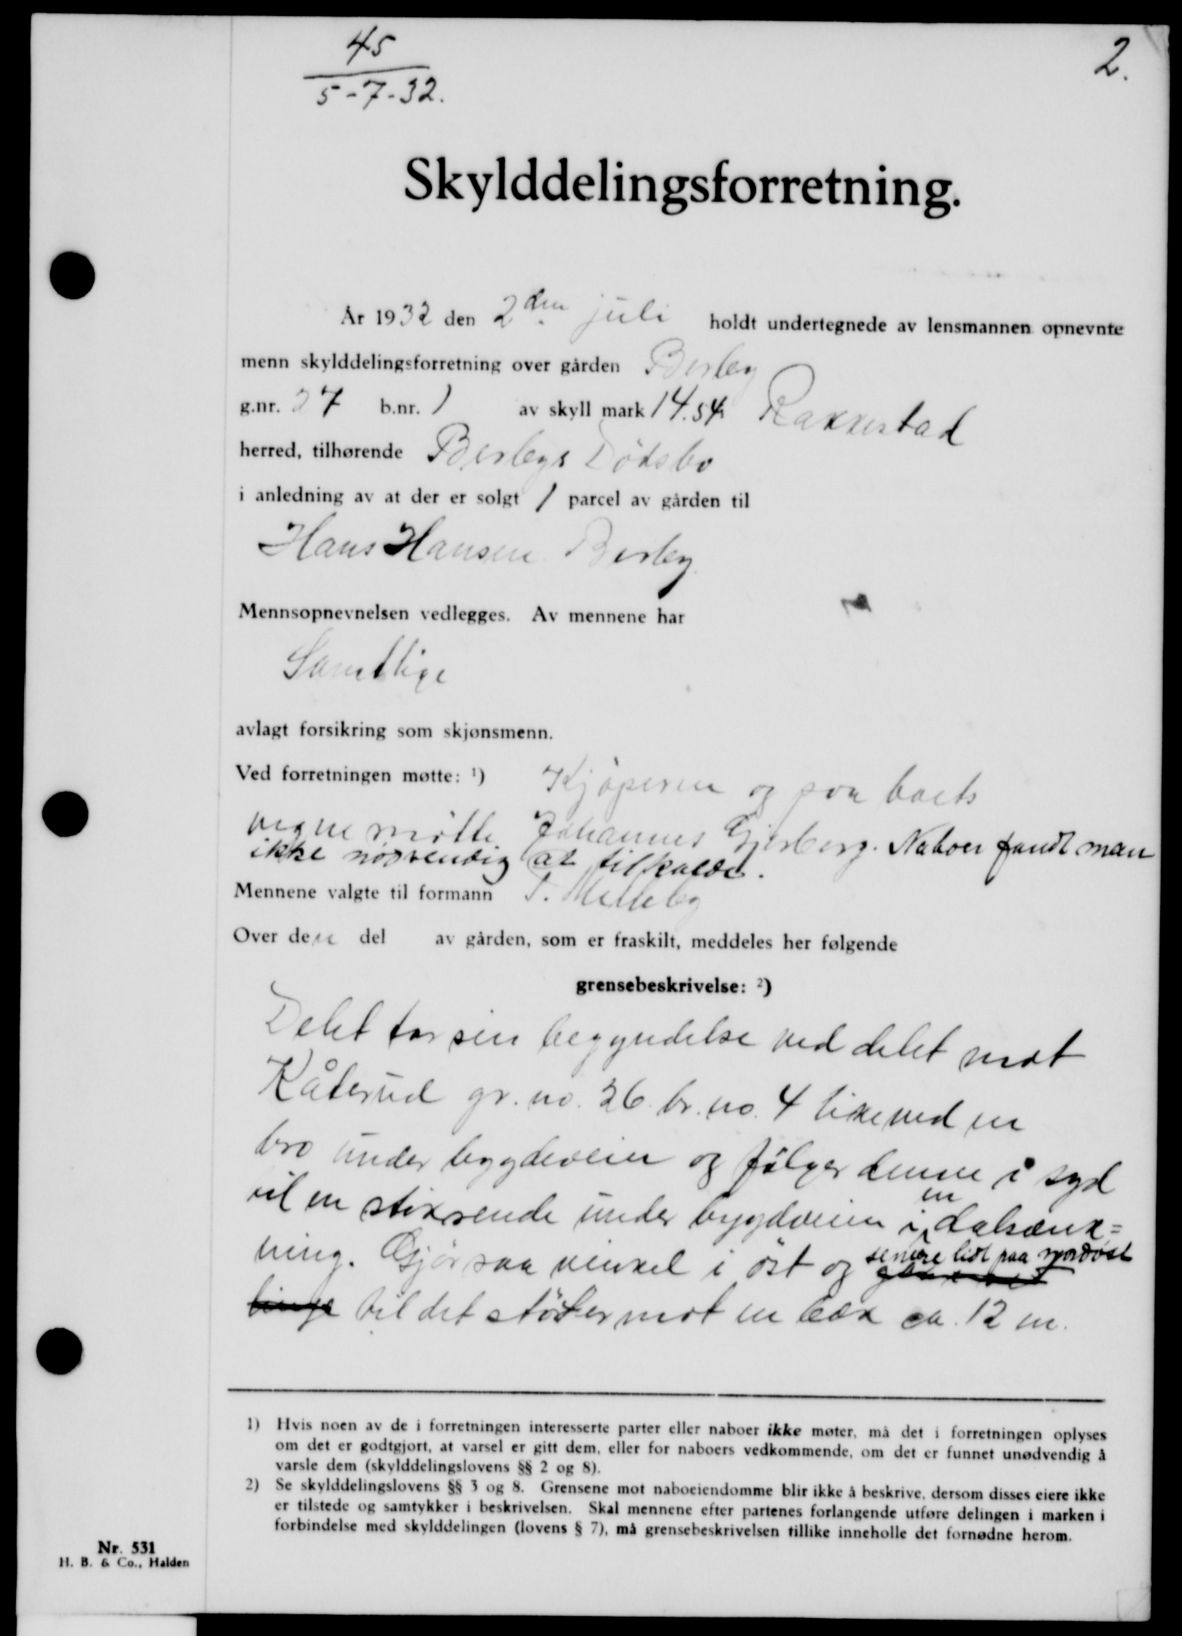 45
5-7-32.
2.
Skylddelingsforretning.
År 1932 den 2den juli holdt undertegnede av lensmannen opnevnte
menn skylddelingsforretning over gården Berby
g.nr. 27 b.nr. 1 av skyll mark 14.54 Rakkestad
herred, tilhørende Berbys Dødsbo
i anledning av at der er solgt 1 parcel av gården til
Hans Hansen Berby
Mennsopnevnelsen vedlegges. Av mennene har
Samtlige
avlagt forsikring som skjønsmenn.
Ved forretningen møtte: 1) Kjøperen og paa boets
vegne møtte Johannes Gjerberg. Naboer fandt man
ikke nødvendig at tilkalde.
Mennene valgte til formann
Over den del av gården, som er fraskilt, meddeles her følgende
grensebeskrivelse: 2)
Delet tar sin begyndelse ved delet mot
Kåterud gr. no. 26 br. no. 4 like ved en
bro under bygdeveien og følger denne i syd
til en stikrende under bygdveien i en dalsænk=
ning. Gjør saa vinkel i øst og senere lidt paa nordøst
til det støter mot en bæk ca. 12 m.
1) Hvis noen av de i forretningen interesserte parter eller naboer ikke møter, må det i forretningen oplyses
om det er godtgjort, at varsel er gitt dem, eller for naboers vedkommende, om det er funnet unødvendig å
varsle dem (skylddelingslovens §§ 2 og 8).
2) Se skylddelingslovens §§ 3 og 8. Grensene mot naboeiendomme blir ikke å beskrive, dersom disses eiere ikke
er tilstede og samtykker i beskrivelsen. Skal mennene efter partenes forlangende utføre delingen i marken i
forbindelse med skylddelingen (lovens § 7), må grensebeskrivelsen tillike inneholle det fornødne herom.
Nr. 531
H. B. & Co., Halden